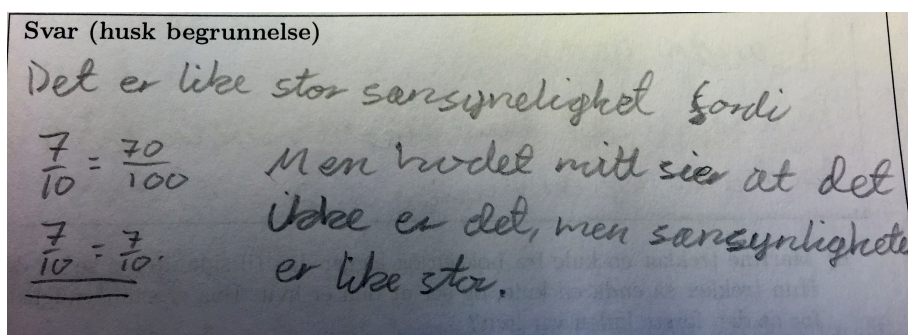 Svar (husk begrunnelse)
Det er like stor sansyneligket fordi
7/10 = 70/100
7/10 = 7/10.
Men hodet mitt sier at det
ikke er det, men sansynlighete
er like stor.